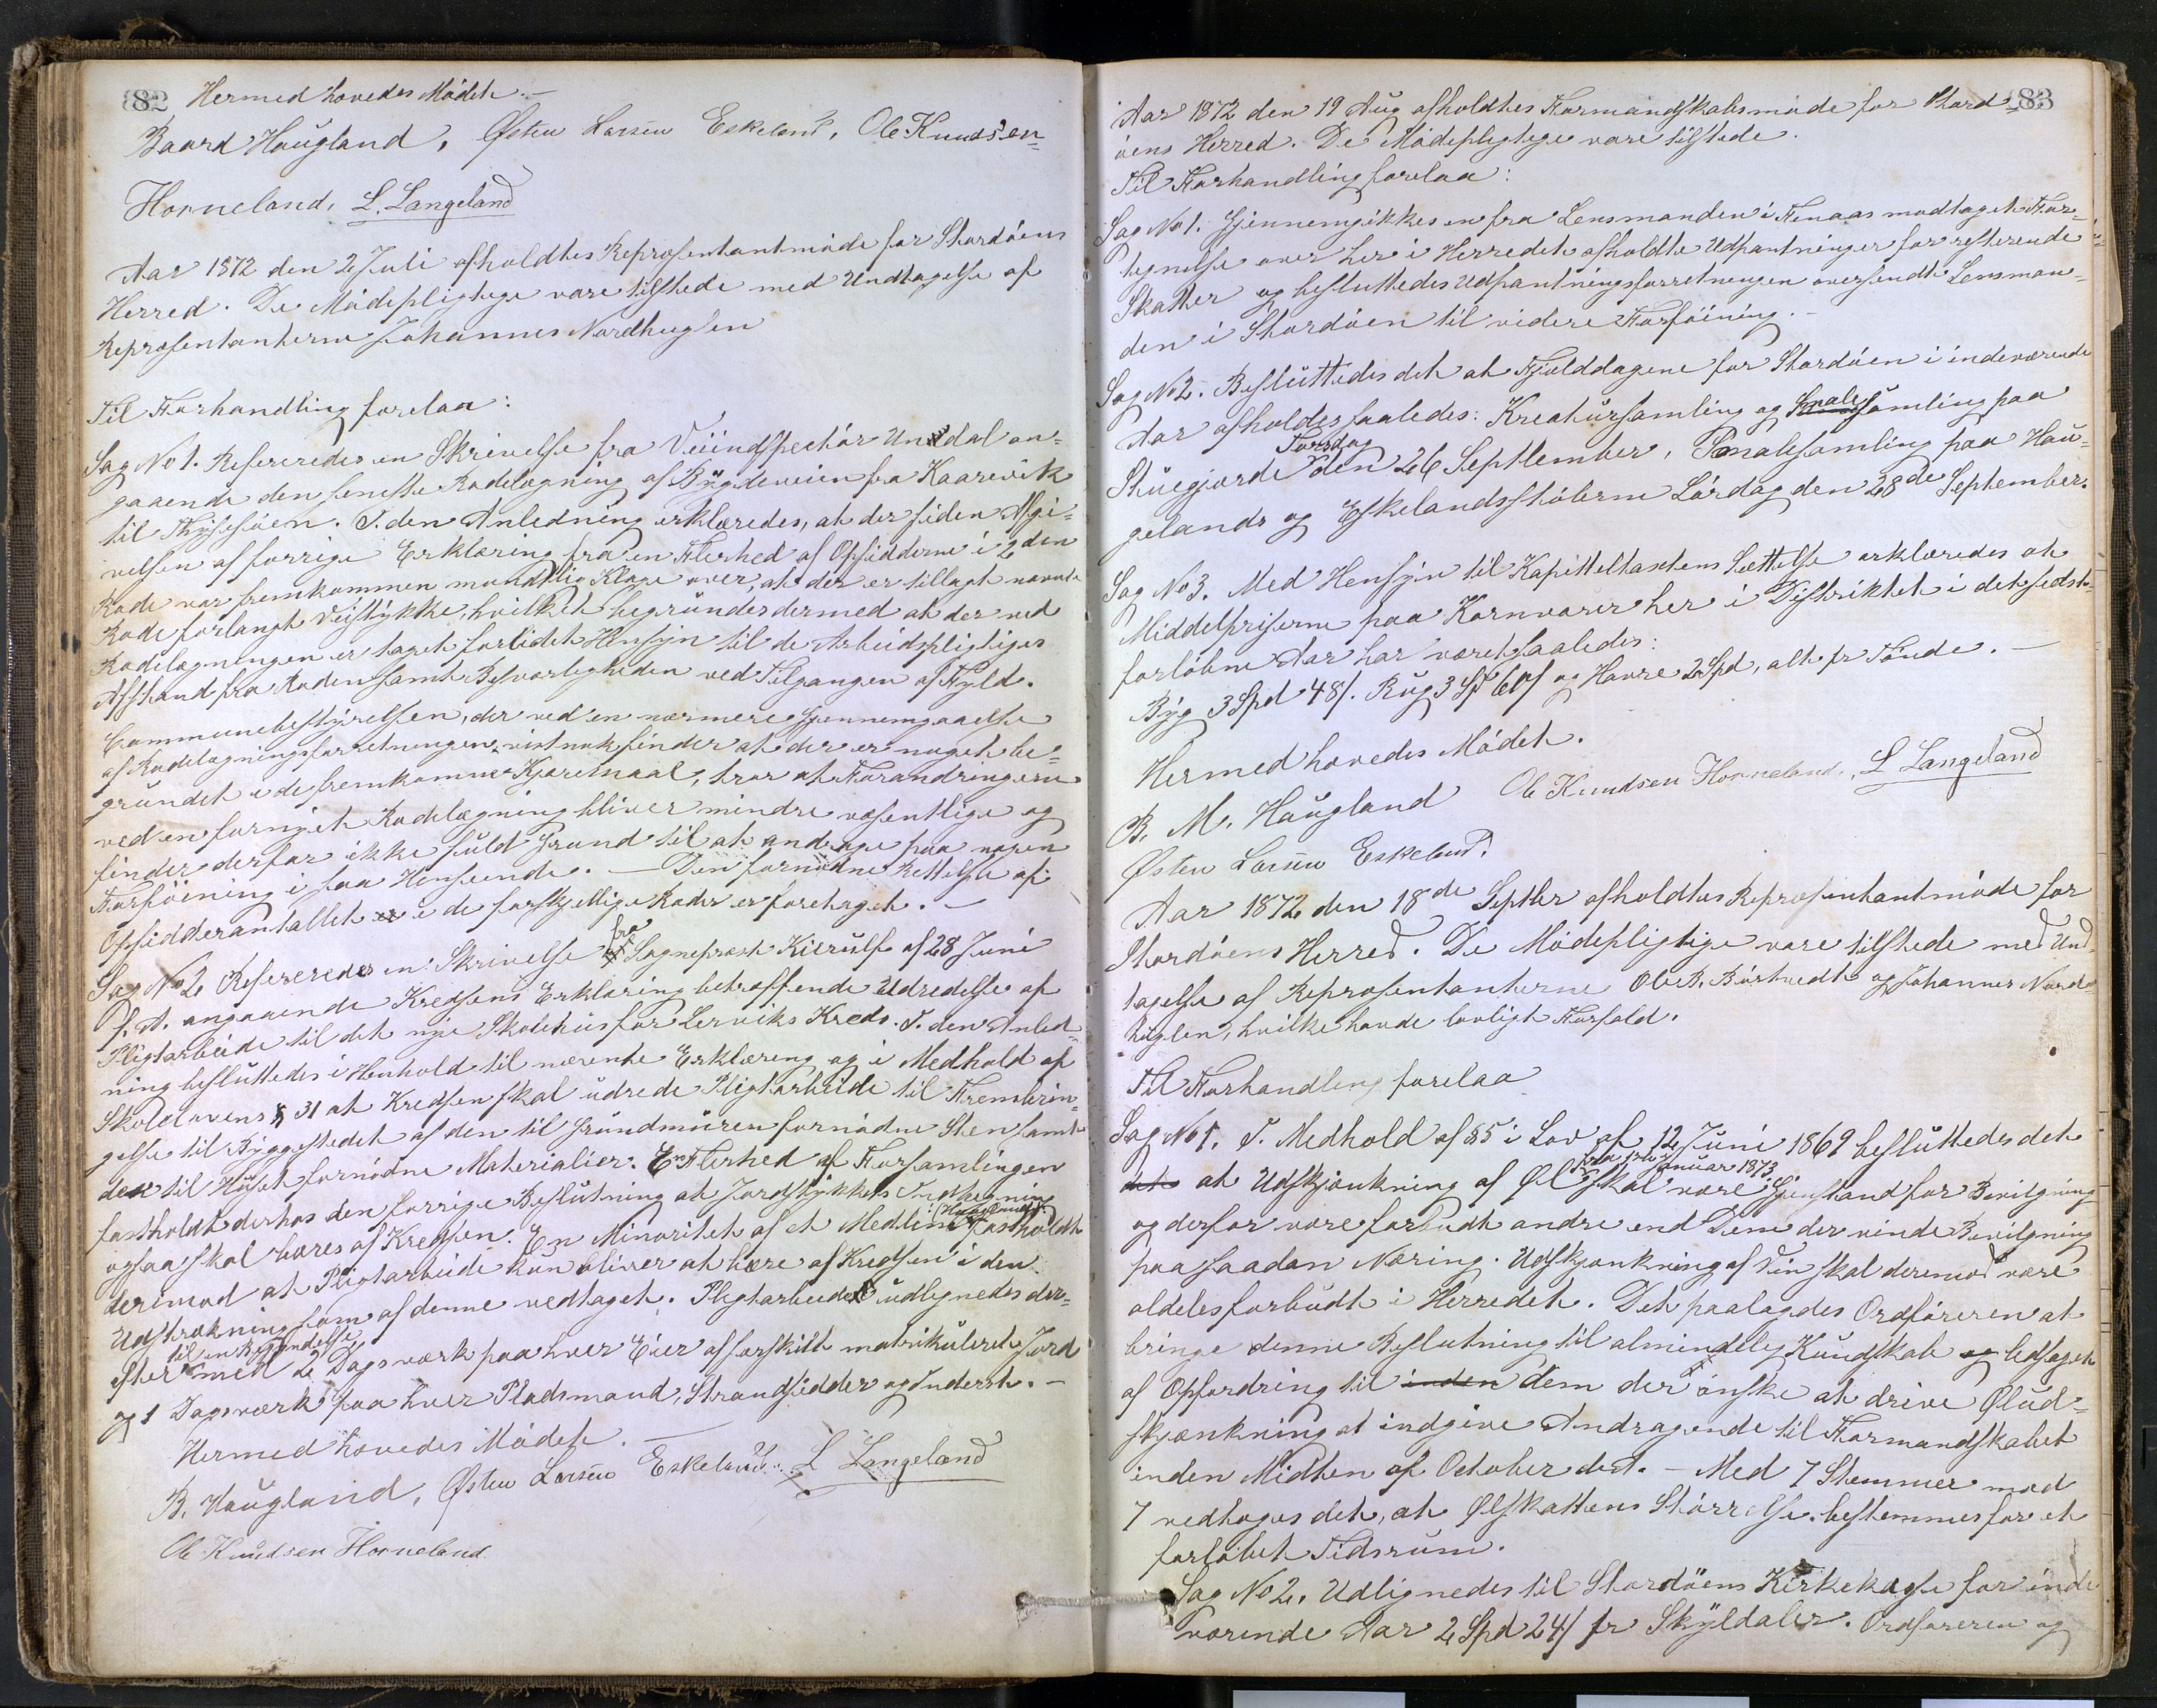 82 Hermed hævedes Mødet. —
Baard Haugland, Østen Larsen Eskeland, Ole Knudsen
Horneland, L. Langeland
Aar 1872 den 2 Juli afholdtes Repræsentantmøde for Stordøens
Herred. De Mødepligtige vare tilstede med Undtagelse af
Repræsentanterne Johannes Nordhuglen
Til Forhandling forelaa:
Sag No 1. Refereredes en Skrivelse fra Veiindspectør Undal an-
gaaende den seneste Rodelægning af Bygdeveien fra Kaarevik
til Thysesøen. I den Anledning erklæredes, at der siden Afgi-
velsen af forrige Erklæring fra en Flerhed af Opsidderne i 2den
Rode var fremkommen mundtlig Klage over, at der er tillagt nævnte
Rode forlangt Veistykke, hvilket begrundes dermed at der ved
Rodelægningen er taget forlidet Hensyn til de Arbeidspligtiges
Afstand fra Roden samt Besværligheden ved Tilgangen af Fyld.
Communebestyrelsen, der ved en nærmere Gjennemgaaelse
af Rodelægningsforretningen, vistnok finder at der er noget be-
grundet i de fremkomne Kjæremaal, tror at Forandringerne
ved en fornyet Rodelægning bliver mindre væsentlige og
finder derfor ikke fuld Grund til at andrage paa nogen
Forføining i saa Henseende. — Den fornødne Rettelse af
Opsidderantallet er i de forskjellige Roder er foretaget. —
Sag No 2 Refereredes en Skrivelse fra Sognepræst Kierulf af 28 Juni
f. A. angaaende Kredsens Erklæring betræffende Udredelse af
Pligtarbeide til det nye Skolehus for Lerviks Kreds. I den Anled-
ning besluttedes i Henhold til nævnte Erklæring og i Medhold af
Skolelovens § 31 at Kredsen skal udrede Pligtarbeide til Frembrin-
gelse til Byggestedet af den til Grundmuren fornødne Sten samt
den til Huset fornødne Materialier. En Flerhed af Forsamlingen
fastholdt derhos den forrige Beslutning at Jordstykkets Indhegning
ogsaa skal bæres af Kredsen. En Minoritet af et Medlem (Haugland) fastholdt
derimod at Pligtarbeide kun bliver at bære af Kredsen i den
Udstrækning som af denne vedtaget. Pligtarbeidet udlignedes der-
efter til en Begyndelse med 2 Dagsværk paa hver Eier af særskilt matrikuleret Jord
og 1 Dagsværk paa hver Pladsmand, Strandsidder og Inderst. —
Hermed hævedes Mødet. —
B. Haugland, Østen Larsen Eskeland, L Langeland
Ole Knudsen Horneland
83
Aar 1872 den 19 Aug afholdtes Formandskabsmøde for Stord-
øens Herred. De Mødepligtige vare tilstede.
Til Forhandling forelaa:
Sag No 1. Gjennemgikkes en fra Lensmanden i Fenaas modtaget For-
tegnelse over her i Herredet afholdte Udpantninger for resterende
Skatter og besluttedes Udpantningsforretningen oversendt Lensman-
den i Stordøen til videre Forføining. —
Sag No 2. Besluttedes det at Fjelddagene for Stordøen i indeværende
Aar afholdes saaledes: Kreatursamling og Smalesamling paa
Stuegjærde Torsdag den 26 September, Smalesamling paa Hau-
gelands og Eskelandsstølerne Lørdag den 28de September.
Sag No 3. Med Hensyn til Kapitteltaxtens Sættelse erklæredes at
Middelpriserne paa Kornvarer her i Distriktet i det sidst-
forløbne Aar har været saaledes:
Byg 3 Spd 48 s. Rug 3 Sp 60 s og Havre 2 Spd, alt pr Tønde. —
Hermed hævedes Mødet.
B. M. Haugland Ole Knudsen Horneland, L Langeland
Østen Larsen Eskeland.
Aar 1872 den 18de Septbr afholdtes Repræsentantmøde for
Stordøens Herred. De Mødepligtige vare tilstede med Und-
tagelse af Repræsentanterne Ole B. Børtvedt og Johannes Nord-
huglen, hvilke havde lovligt Forfald.
Til Forhandling forelaa
Sag No 1. I Medhold af §5 i Lov af 12 Juni 1869 besluttedes det
det at Udskjænkning af Øl fra 1ste Januar 1873 skal være Gjenstand for Bevilgning
og derfor være forbudt andre end Dem der vinde Bevilgning
paa saadan Næring. Udskjænkning af Vin skal derimod være
aldeles forbudt i Herredet. Det paalagdes Ordføreren at
bringe denne Beslutning til almindelig Kundskab og ledsaget
af Opfordring til inden dem der ønske at drive Ølud-
skjænkning at indgive Andragende til Formandskabet
inden Midten af October dst. — Med 7 Stemmer mod
7 vedtoges det, at Ølskattens Størrelse bestemmes for et
forløbet Tidsrum.
Sag No 2. Udlignedes til Stordøens Kirkekasse for inde
værende Aar 2 Spd 24 s pr Skyldaler. Ordføreren og